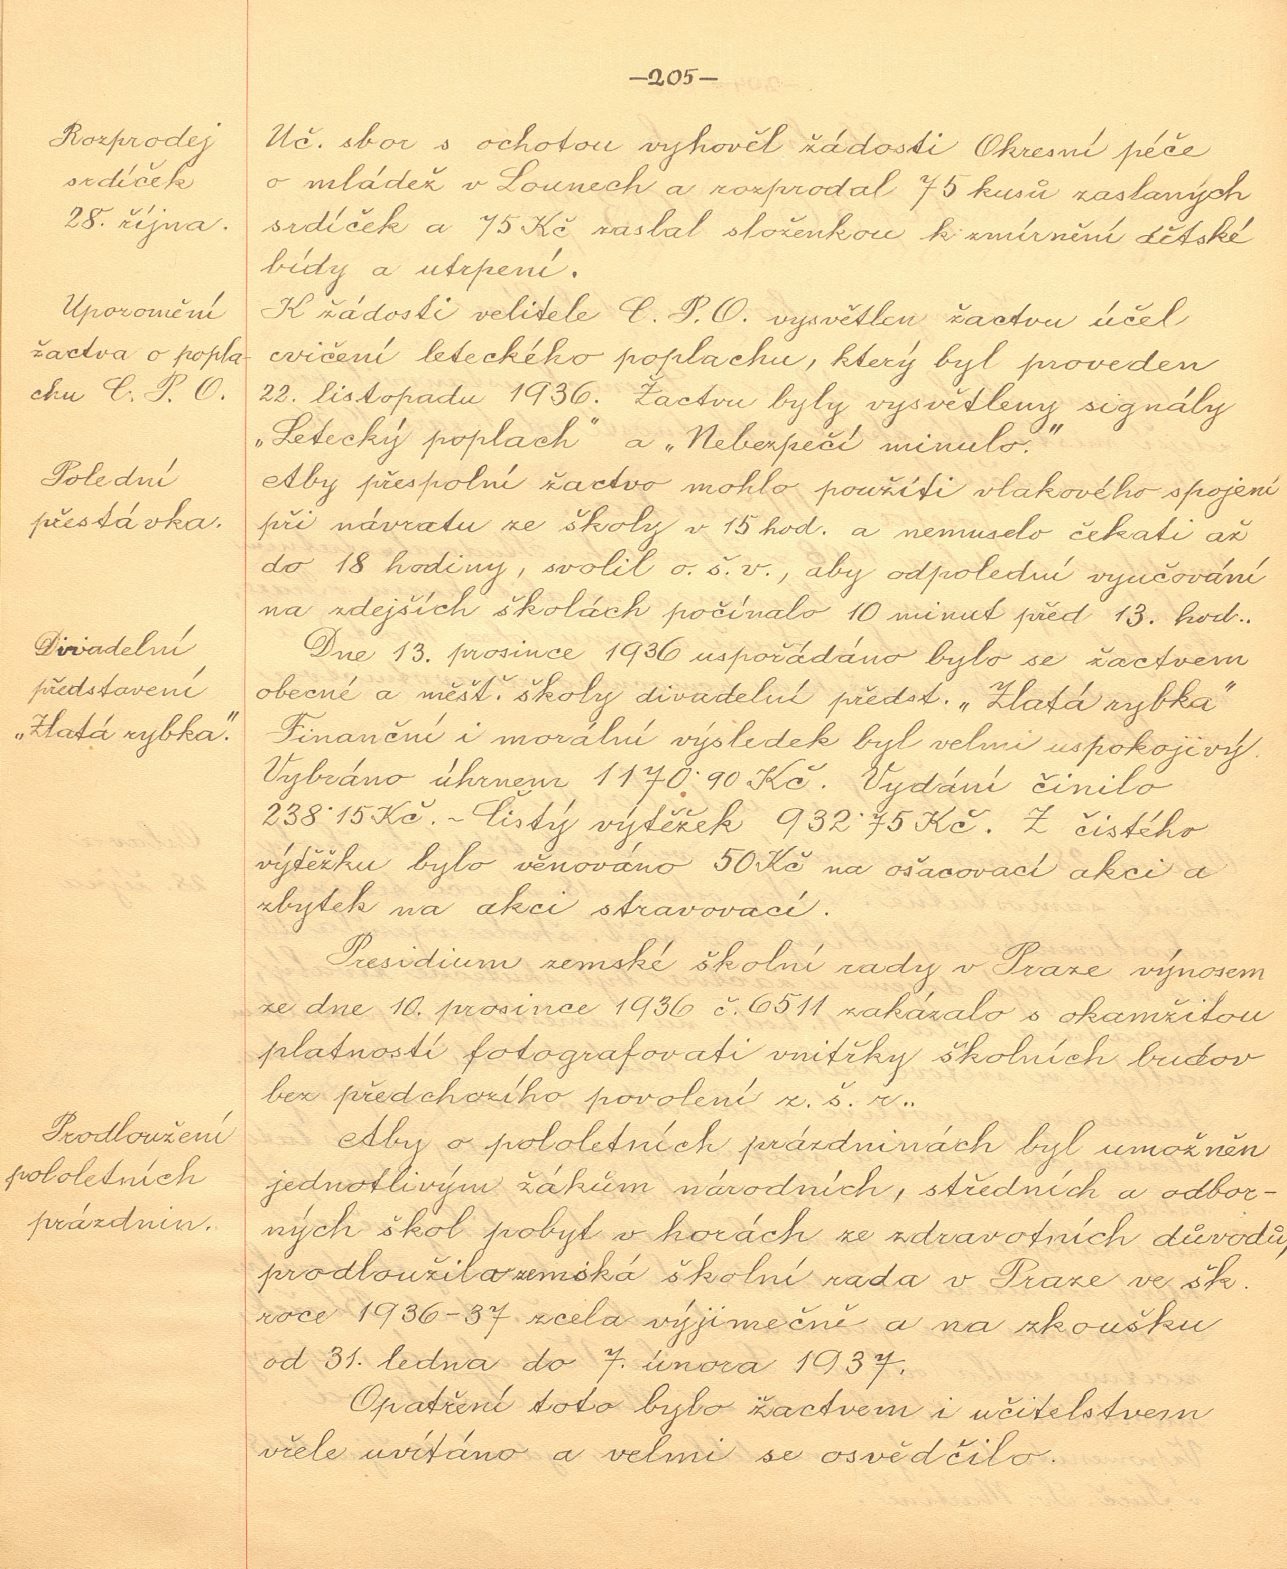 —205—
Rozprodej
srdíček
28. října.
Uč. sbor s ochotou vyhověl žádosti Okresní péče
o mládež v Lounech a rozprodal 75 kusů zaslaných
srdíček a 75 Kč zaslal složenkou k zmírnění dětské
bídy a utrpení.
Uporomění
žactva o popla-
chu C. P. O.
K žádosti velitele C. P. O. vysvětlen žactvu účel
cvičení leteckého poplachu, který byl proveden
22. listopadu 1936. Žactvu byly vysvětleny signály
„Letecký poplach" a „Nebezpečí minulo."
Polední
přestávka.
Aby přespolní žactvo mohlo použíti vlakového spojení
při návratu ze školy v 15 hod. a nemuselo čekati až
do 18 hodiny, svolil o. š. v., aby odpolední vyučování
na zdejších školách počínalo 10 minut před 13. hod..
Divadelní
představení
„Zlatá rybka".
Dne 13. prosince 1936 uspořádáno bylo se žactvem
obecné a měšť. školy divadelní předst. „Zlatá rybka"
Finanční i morální výsledek byl velmi uspokojivý.
Vybráno úhrnem 1170·90 Kč. Vydání činilo
238·15 Kč. - Čistý výtěžek 932·75 Kč. Z čistého
výtěžku bylo věnováno 50 Kč na ošacovací akci a
zbytek na akci stravovací.
Presidium zemské školní rady v Praze výnosem
ze dne 10. prosince 1936 č. 6511 zakázalo s okamžitou
platností fotografovati vnitřky školních budov
bez předchozího povolení z. š. r..
Prodloužení
pololetních
prázdnin.
Aby o pololetních prázdninách byl umožněn
jednotlivým žákům národních, středních a odbor-
ných škol pobyt v horách ze zdravotních důvodů,
prodloužila zemská školní rada v Praze ve šk.
roce 1936-37 zcela výjimečně a na zkoušku
od 31. ledna do 7. února 1937.
Opatření toto bylo žactvem i učitelstvem
vřele uvítáno a velmi se osvědčilo.